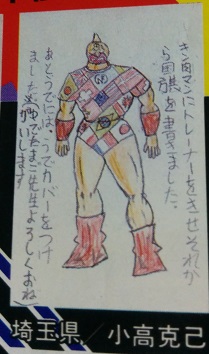 きん肉マンにトレーナーをきせそれか
ら国旗を書きました。
あとうでには、うでカバーをつけ
ました。ゆでたまご先生よろしくおね
がいします
埼玉県 小高克己